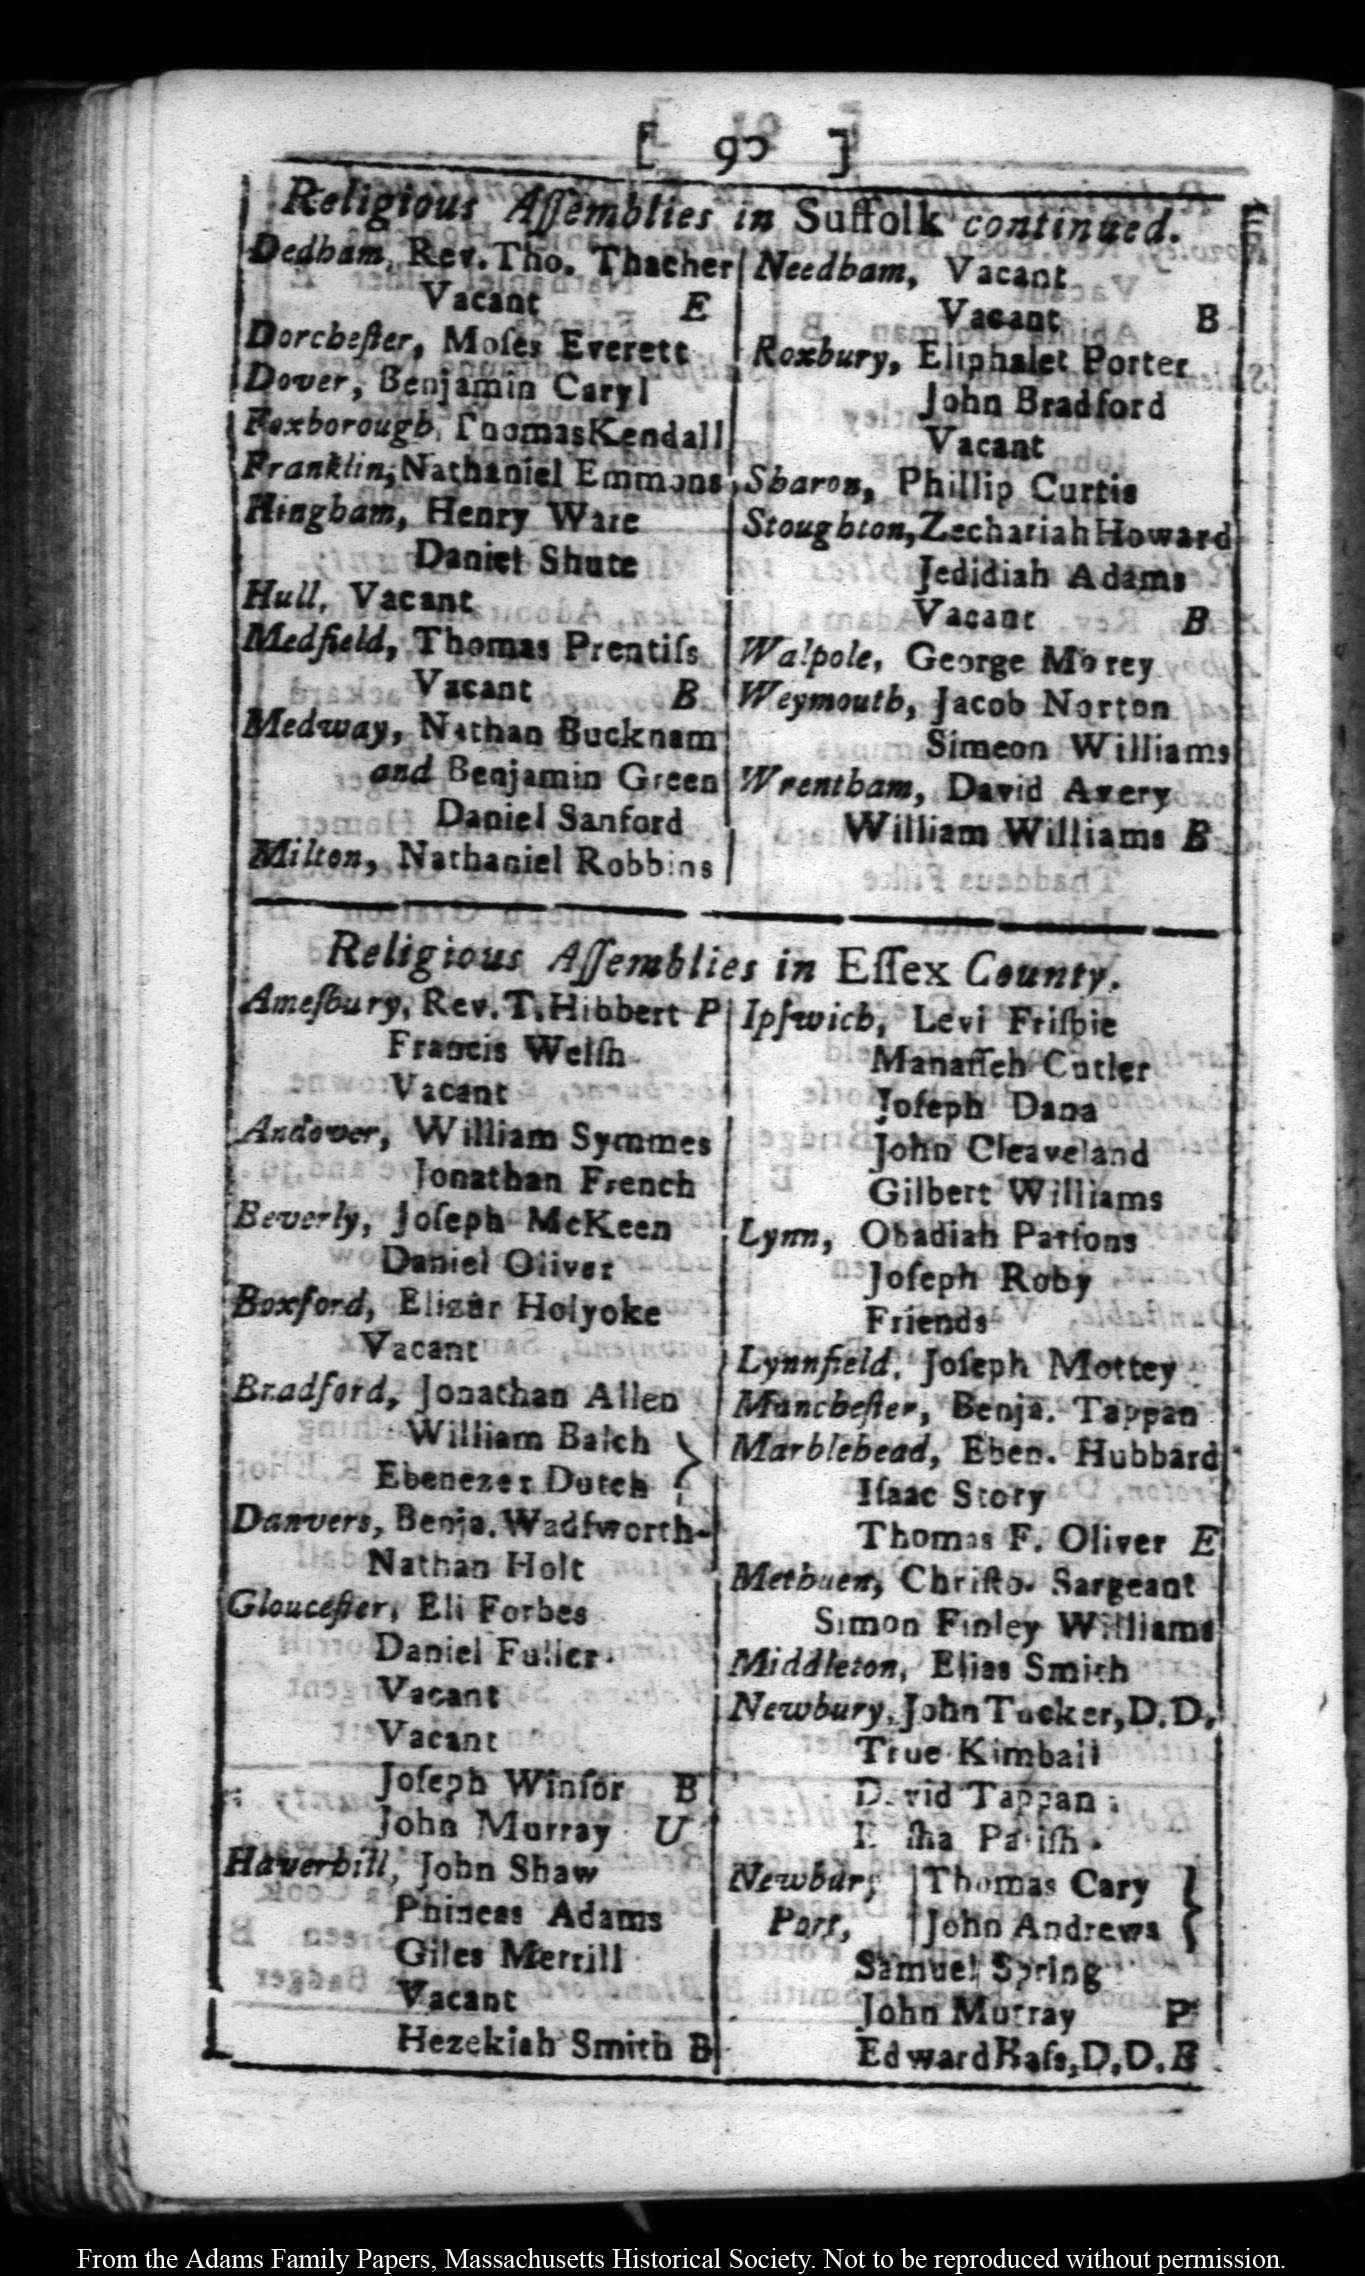 [ 90 ]
Religious Aſſemblies in Suffolk continued.
Dedham, Rev. Tho. Thacher
Vacant E
Dorcheſter, Moſes Everett
Dover, Benjamin Caryl
Foxborough, Thomas Kendall
Franklin, Nathaniel Emmons
Hingham, Henry Ware
Daniel Shute
Hull, Vacant
Medfield, Thomas Prentiſs
Vacant B
Medway, Nathan Bucknam
and Benjamin Green
Daniel Sanford
Milton, Nathaniel Robbins
Needham, Vacant
Vacant B
Roxbury, Eliphalet Porter
John Bradford
Vacant
Sharon, Phillip Curtis
Stoughton, Zechariah Howard
Jedidiah Adams
Vacant B
Walpole, George Morey
Weymouth, Jacob Norton
Simeon Williams
Wrentham, David Avery
William Williams B
Religious Aſſemblies in Eſſex County.
Ameſbury, Rev. T. Hibbert P
Francis Welſh
Vacant
Andover, William Symmes
Jonathan French
Beverly, Joſeph McKeen
Daniel Oliver
Boxford, Elizur Holyoke
Vacant
Bradford, Jonathan Allen
William Balch }
Ebenezer Dutch
Danvers, Benja. Wadſworth
Nathan Holt
Glouceſter, Eli Forbes
Daniel Fuller
Vacant
Vacant
Joſeph Winſor B
John Murray U
Haverhill, John Shaw
Phineas Adams
Giles Merrill
Vacant
Hezekiah Smith B
Ipſwich, Levi Friſbie
Manaſſeh Cutler
Joſeph Dana
John Cleaveland
Gilbert Williams
Lynn, Obadiah Parſons
Joſeph Roby
Friends
Lynnfield, Joſeph Mottey
Mancheſter, Benja. Tappan
Marblehead, Eben. Hubbard
Iſaac Story
Thomas F. Oliver E
Methuen, Chriſto. Sargeant
Simon Finley Williams
Middleton, Elias Smith
Newbury, John Tucker, D.D.
True Kimball
David Tappan
Pariſh
Newbury Thomas Cary }
Port, John Andrews
Samuel Spring
John Murray P
Edward Baſs, D.D. E
From the Adams Family Papers, Massachusetts Historical Society. Not to be reproduced without permission.